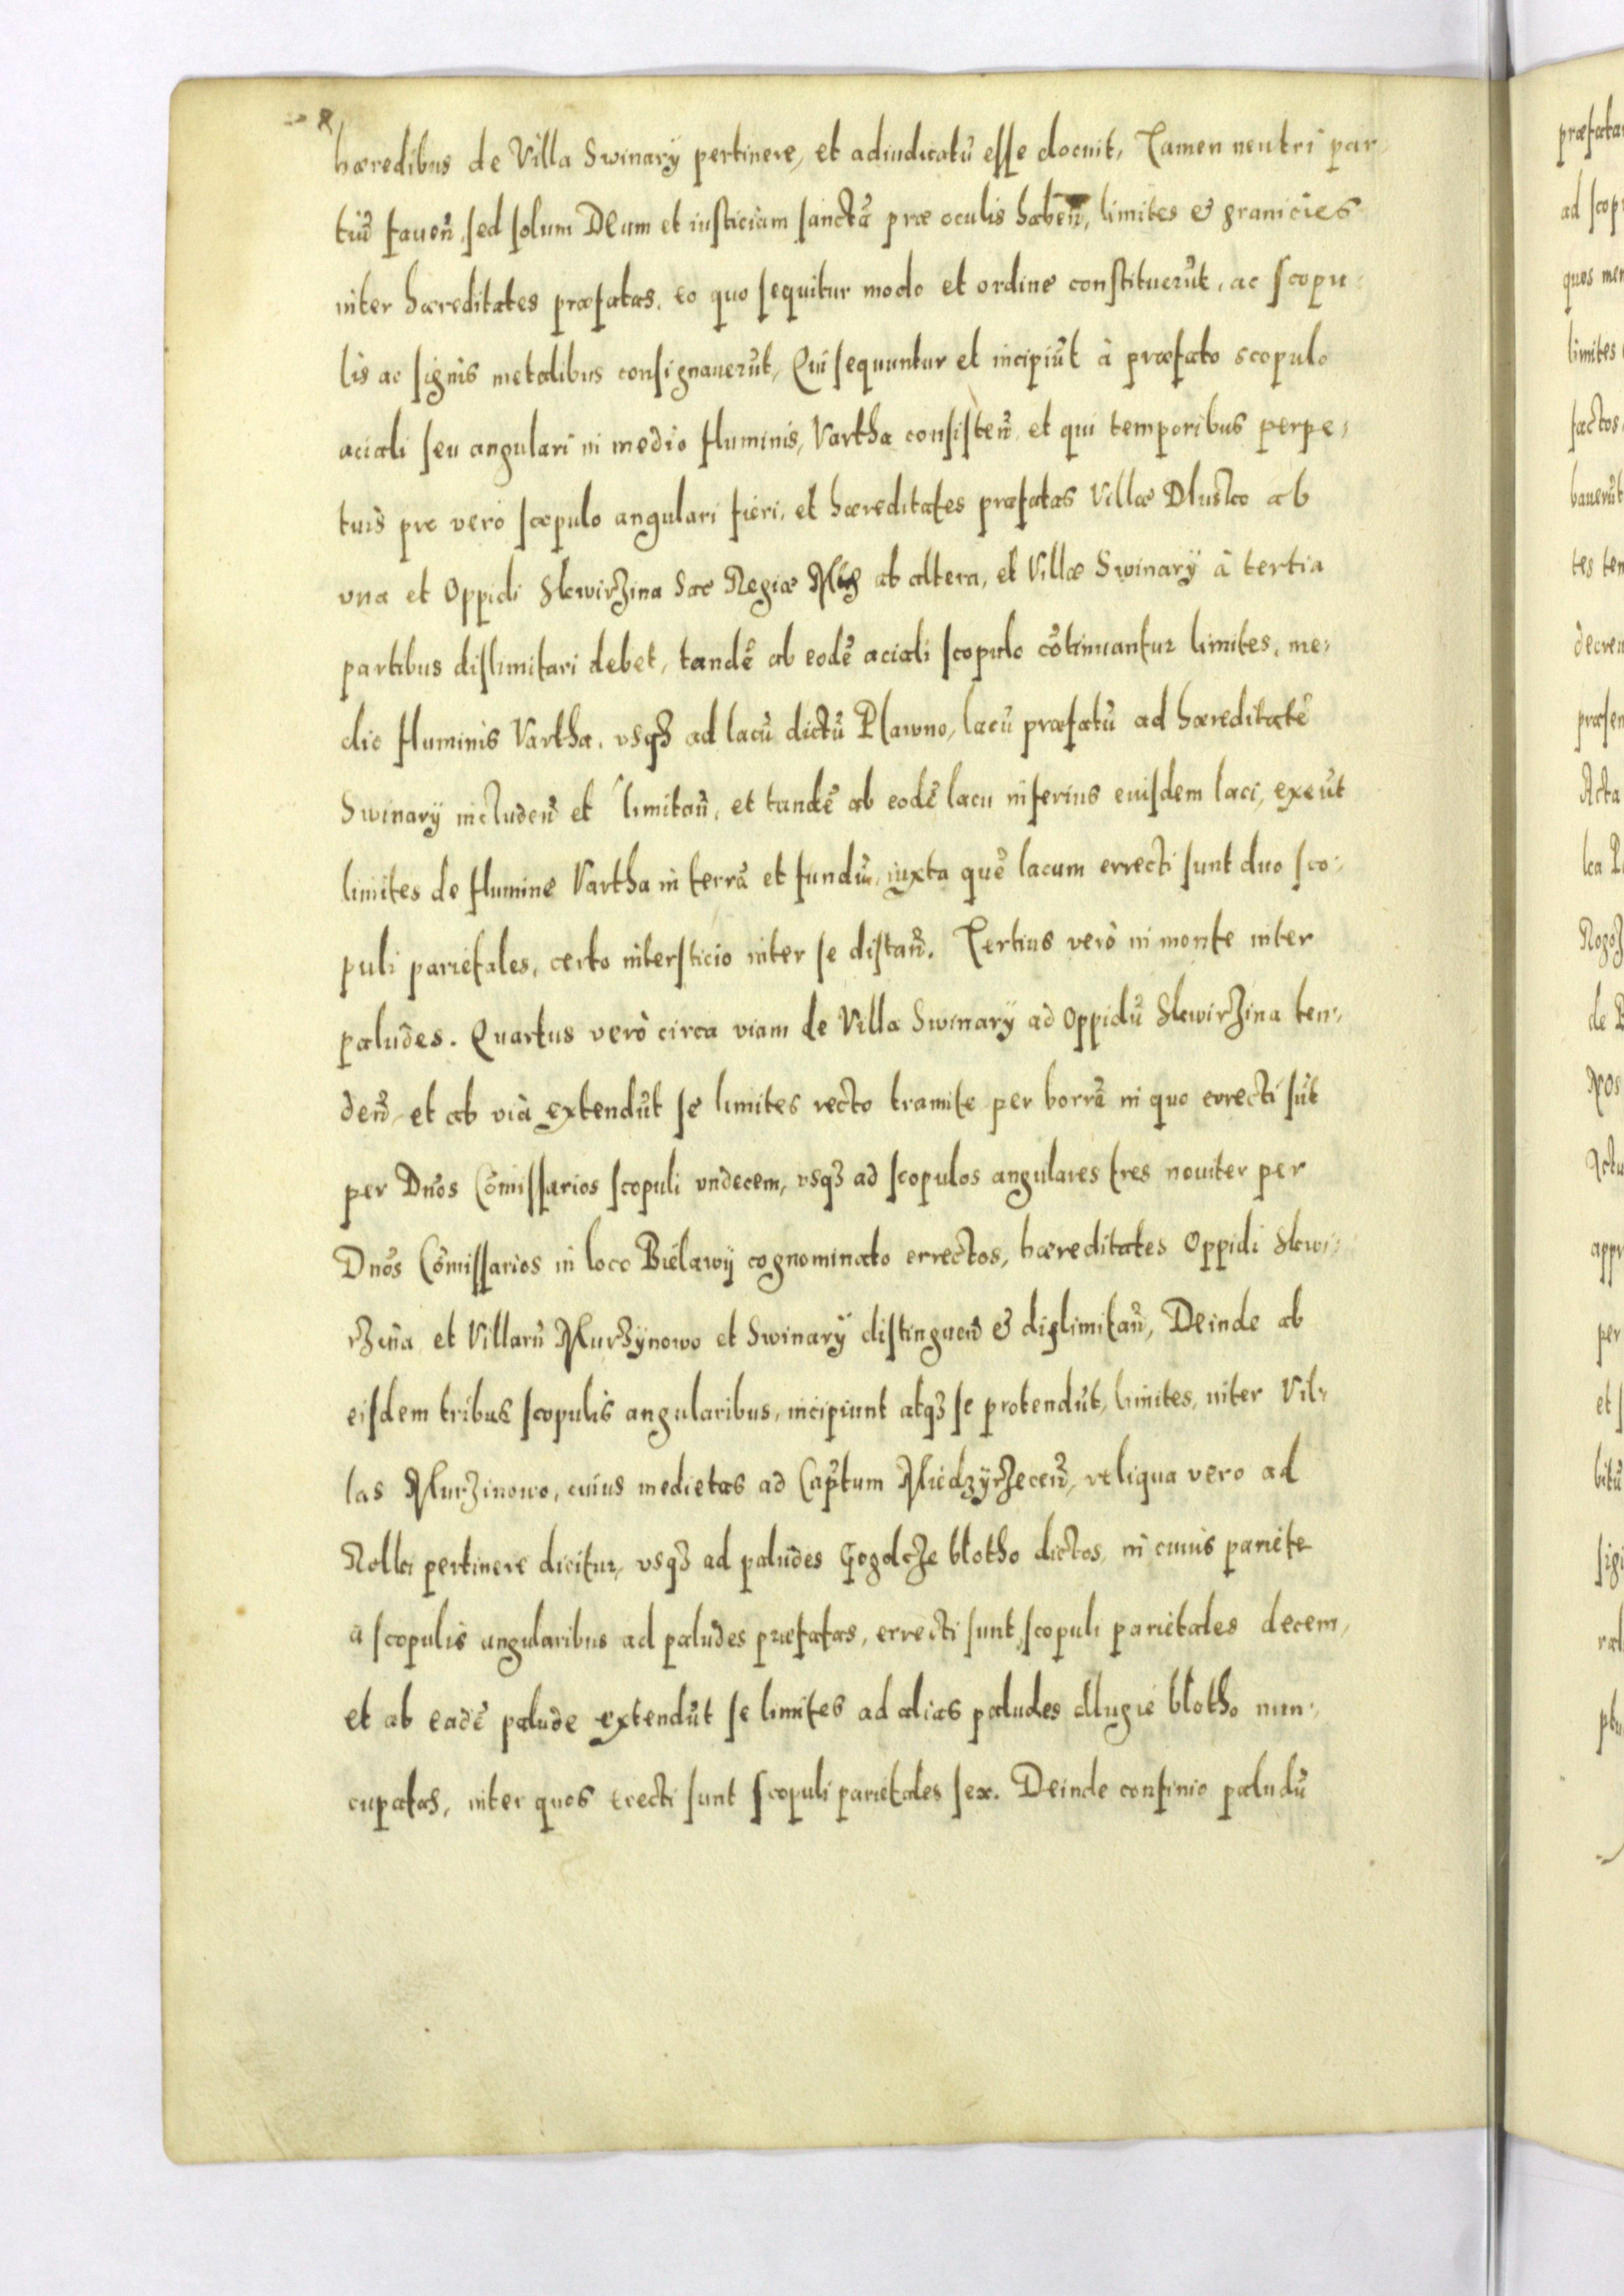 hæredibus de Villa Swinarÿ pertinere, et adiudicatū eſſe docuit, Tamen neutri par-
tiū faueñ, ſed ſolum DEum et iuſticiam ſanctā præ oculis habeñ, limites & granicies
inter hæreditates præfatas, eo quo ſequitur modo et ordine conſtituerūt, ac ſcopu-
lis ac ſignis metalibus conſignauerūt, Qui ſequuntur et incipiūt à præfato scopulo
aciali ſeu angulari in medio fluminis, Vartha conſiſteñ, et qui temporibus perpe-
tuis pro vero ſcopulo angulari fieri, et hæreditates præfatas Villæ Dlusko ab
vna et Oppidi Skwirzina Sac Regiæ Mtis ab altera, et Villæ Swinarÿ à tertia
partibus diſlimitari debet, tandē ab eodē aciali ſcopulo cōtinuantur limites, me-
dio fluminis Vartha, vsqȝ ad lacū dictū Plawno, lacū præfatū ad hæreditatē
Swinarÿ includeñ et limitañ, et tandē ab eodē lacu inferius euiſdem laci, exeūt
limites de flumine Vartha in terrā et fundū, iuxta quē lacum errecti ſunt duo ſco-
puli parietales, certo interſticio inter ſe diſtañ. Tertius verò in monte inter
paludes. Quartus verò circa viam de Villa Swinarÿ ad Oppidū Skwirzina ten-
deñ, et ab via extendūt ſe limites recto tramite per borrā in quo errecti ſūt
per Dños Cōmiſſarios ſcopuli vndecem, vsqȝ ad ſcopulos angulares tres nouiter per
Dños Cōmiſſarios in loco Bielawÿ cognominato errectos, hæreditates Oppidi Skwi-
rzina et Villarū Murzÿnowo et Swinarÿ diſtingueñ & diſlimitañ, Deinde ab
eiſdem tribus ſcopulis angularibus, incipiunt atqȝ ſe protendūt, limites, inter Vil-
las Murzinowo, cuius medietas ad Capt̄um Miedzÿrzeceñ, reliqua vero ad
Rokki pertinere dicitur, vsqȝ ad paludes Gogolcze blotho dictos, in cuius pariete
a ſcopulis angularibus ad paludes præfatas, errecti ſunt ſcopuli parietales decem,
et ab eadē palude extendūt ſe limites ad alias paludes dlugie blotho nun-
cupatas, inter quos erecti ſunt ſcopuli parietales ſex. Deinde confinio paludū